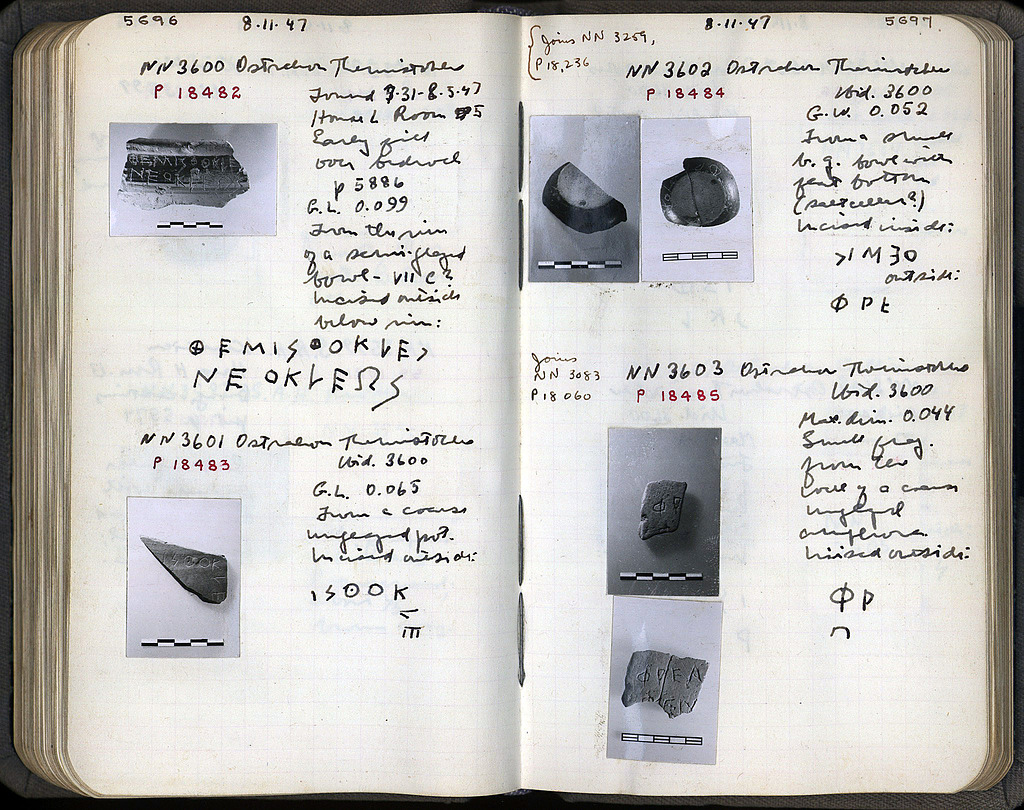 5696
8·11·47
NN 3600 Ostrakon Themistokles
P 18482
Found 7·31-8·5·47
House L Room 5
Early fill
over bedrock
p 5886
G.L. 0.099
From the rim
of a semi-glazed
bowl - VII C?
Incised outside
below rim:
ΘEMISΘOKLES
NEOKLEΩS
NN 3601 Ostrakon Themistokles
P 18483
Ibid. 3600
G.L. 0.065
From a coarse
unglazed pot.
Incised outside:
ISΘOK
8·11·47
5697
Joins NN 3259,
P 18,236
NN 3602 Ostrakon Themistokles
P 18484
Ibid. 3600
G.W. 0.052
From a small
b.g. bowl with
flat bottom
(saltcellar?)
Incised inside:
outside:
Φ P E
Joins
NN 3083
P 18060
NN 3603 Ostrakon Themistokles
P 18485
Ibid. 3600
Max. dim. 0.044
Small frag.
from the
of a coarse
unglazed
amphora.
Incised outside:
Φ P